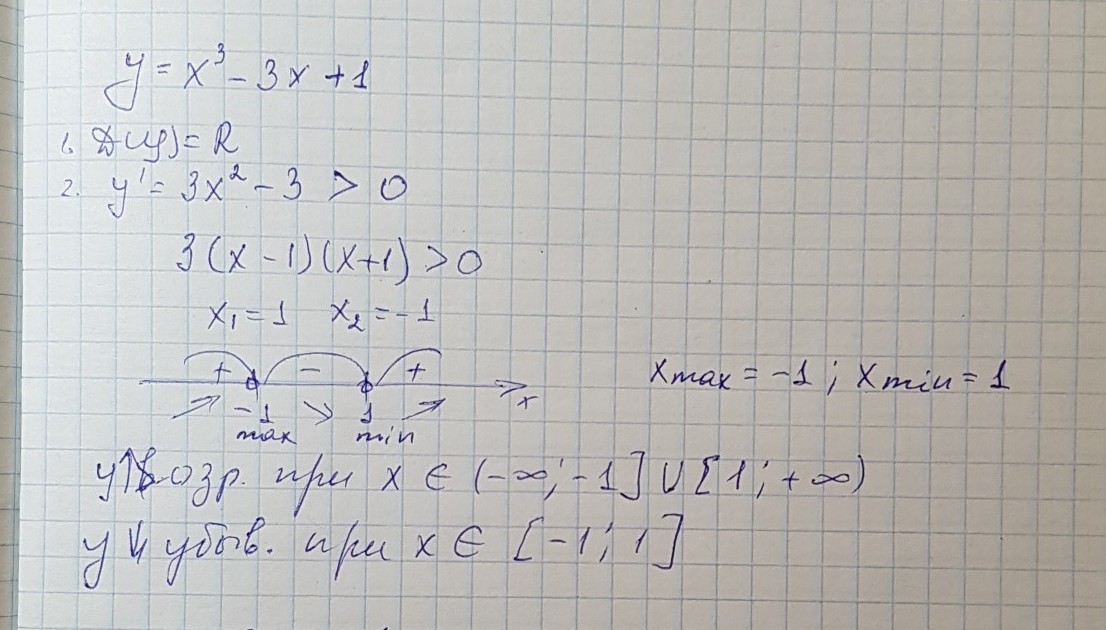 y = x³ - 3x + 1
1. D(y) = R
2. y' = 3x² - 3 > 0
3(x - 1)(x + 1) > 0
x₁ = 1 x₂ = -1
+ - +
-1 1 x
max min
x max = -1 ; x min = 1
y↑ возр. при x ∈ (-∞; -1] ∪ [1; +∞)
y↓ убыв. при x ∈ [-1; 1]